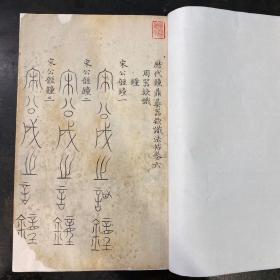 歷代鐘鼎彝器款識法帖卷六
周器款識
鐘
宋公䪫鐘一
宋公成之䪫鐘
宋公䪫鐘二
宋公成之䪫鐘
宋公䪫鐘三
宋公成之䪫鐘